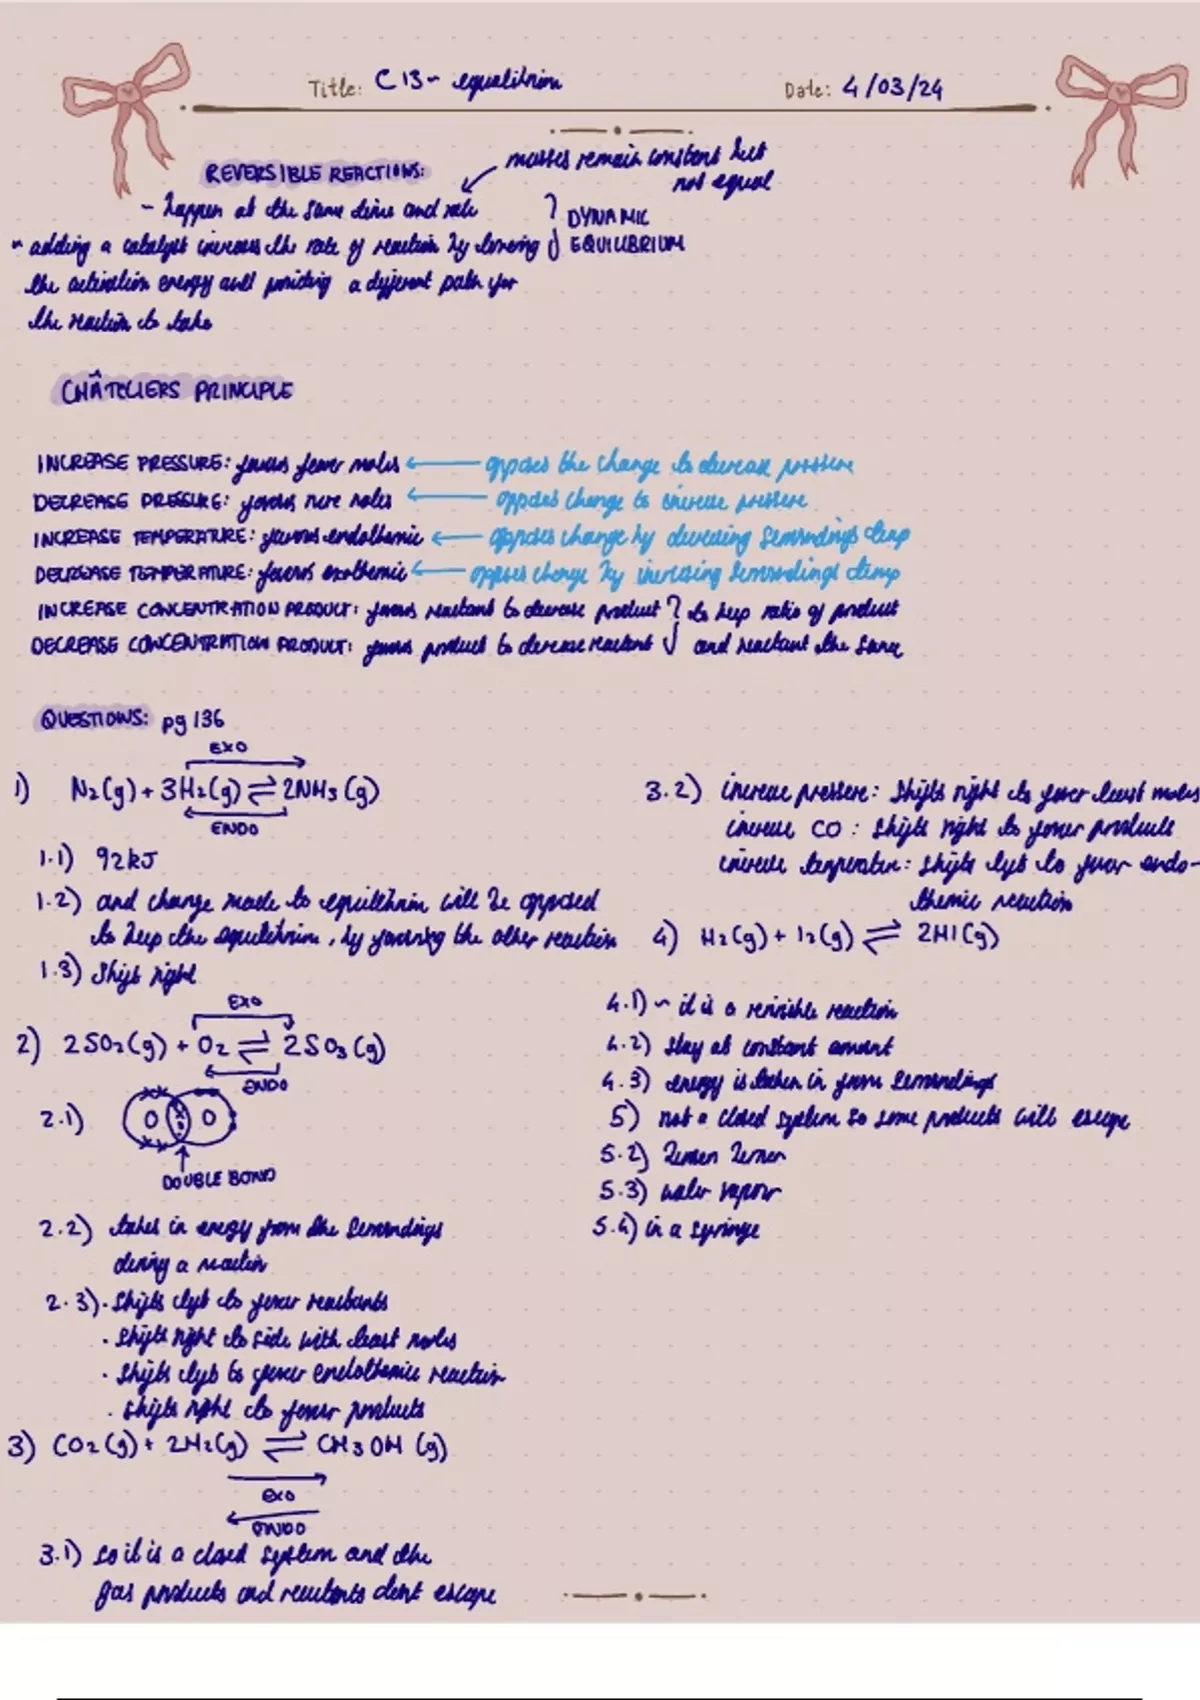 Title: C13 - equilibrium
Date: 4/03/24
masses remain constant but
not equal
REVERSIBLE REACTIONS:
- happen at the same time and rate
DYNAMIC
EQUILIBRIUM
- adding a catalyst increases the rate of reaction by lowering
the activation energy and providing a different path for
the reaction to take
CHÂTELIERS PRINCIPLE
INCREASE PRESSURE: favours fewer moles ← opposes the change to decrease pressure
DECREASE PRESSURE: favours more moles ← opposes change to increase pressure
INCREASE TEMPERATURE: favours endothermic ← opposes change by decreasing surroundings temp
DECREASE TEMPERATURE: favours exothermic ← opposes change by increasing surroundings temp
INCREASE CONCENTRATION PRODUCT: favours reactant to decrease product } to keep ratio of product
DECREASE CONCENTRATION PRODUCT: favours product to decrease reactant } and reactant the same
QUESTIONS: pg 136
EXO
1) N2(g) + 3H2(g) ⇌ 2NH3(g)
ENDO
1.1) 92kJ
1.2) and change made to equilibrium will be opposed
to keep the equilibrium, by favouring the other reaction
1.3) Shifts right
EXO
2) 2SO2(g) + O2 ⇌ 2SO3(g)
ENDO
2.1) O O
DOUBLE BOND
2.2) takes in energy from the surroundings
during a reaction
2.3) • Shifts left to favour reactants
• shifts right to side with least moles
• shifts left to favour endothermic reaction
• shifts right to favour products
3) CO2(g) + 2H2(g) ⇌ CH3OH(g)
EXO
ENDO
3.1) so it is a closed system and the
gas products and reactants dont escape
3.2) increase pressure: shifts right to favour least moles
increase CO: shifts right to favour products
increase temperature: shifts left to favour endo-
thermic reaction
4) H2(g) + I2(g) ⇌ 2HI(g)
4.1) - it is a reversible reaction
4.2) stay at constant amount
4.3) energy is taken in from surroundings
5) not a closed system so some products will escape
5.2) Bunsen burner
5.3) water vapour
5.4) in a syringe